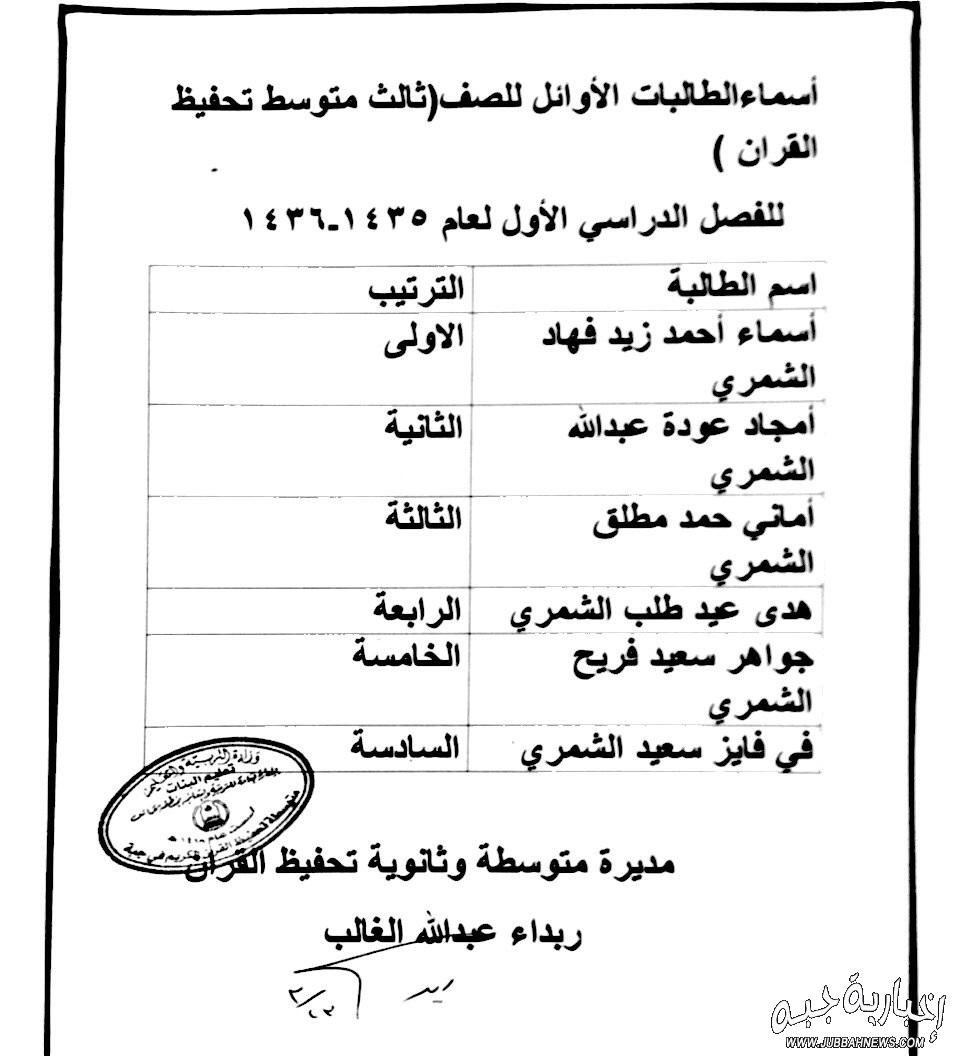 أسماءالطالبات الأوائل للصف(ثالث متوسط تحفيظ
القران )
للفصل الدراسي الأول لعام ١٤٣٥-١٤٣٦
اسم الطالبة الترتيب
أسماء أحمد زيد فهاد الاولى
الشمري
أمجاد عودة عبدالله الثانية
الشمري
أماني حمد مطلق الثالثة
الشمري
هدى عيد طلب الشمري الرابعة
جواهر سعيد فريح الخامسة
الشمري
في فايز سعيد الشمري السادسة
وزارة التربية والتعليم
تعليم البنات
متوسطة تحفيظ القران الكريم في جبة
مديرة متوسطة وثانوية تحفيظ القران
ربداء عبدالله الغالب
إخبارية جبه
WWW.JUBBAHNEWS.COM